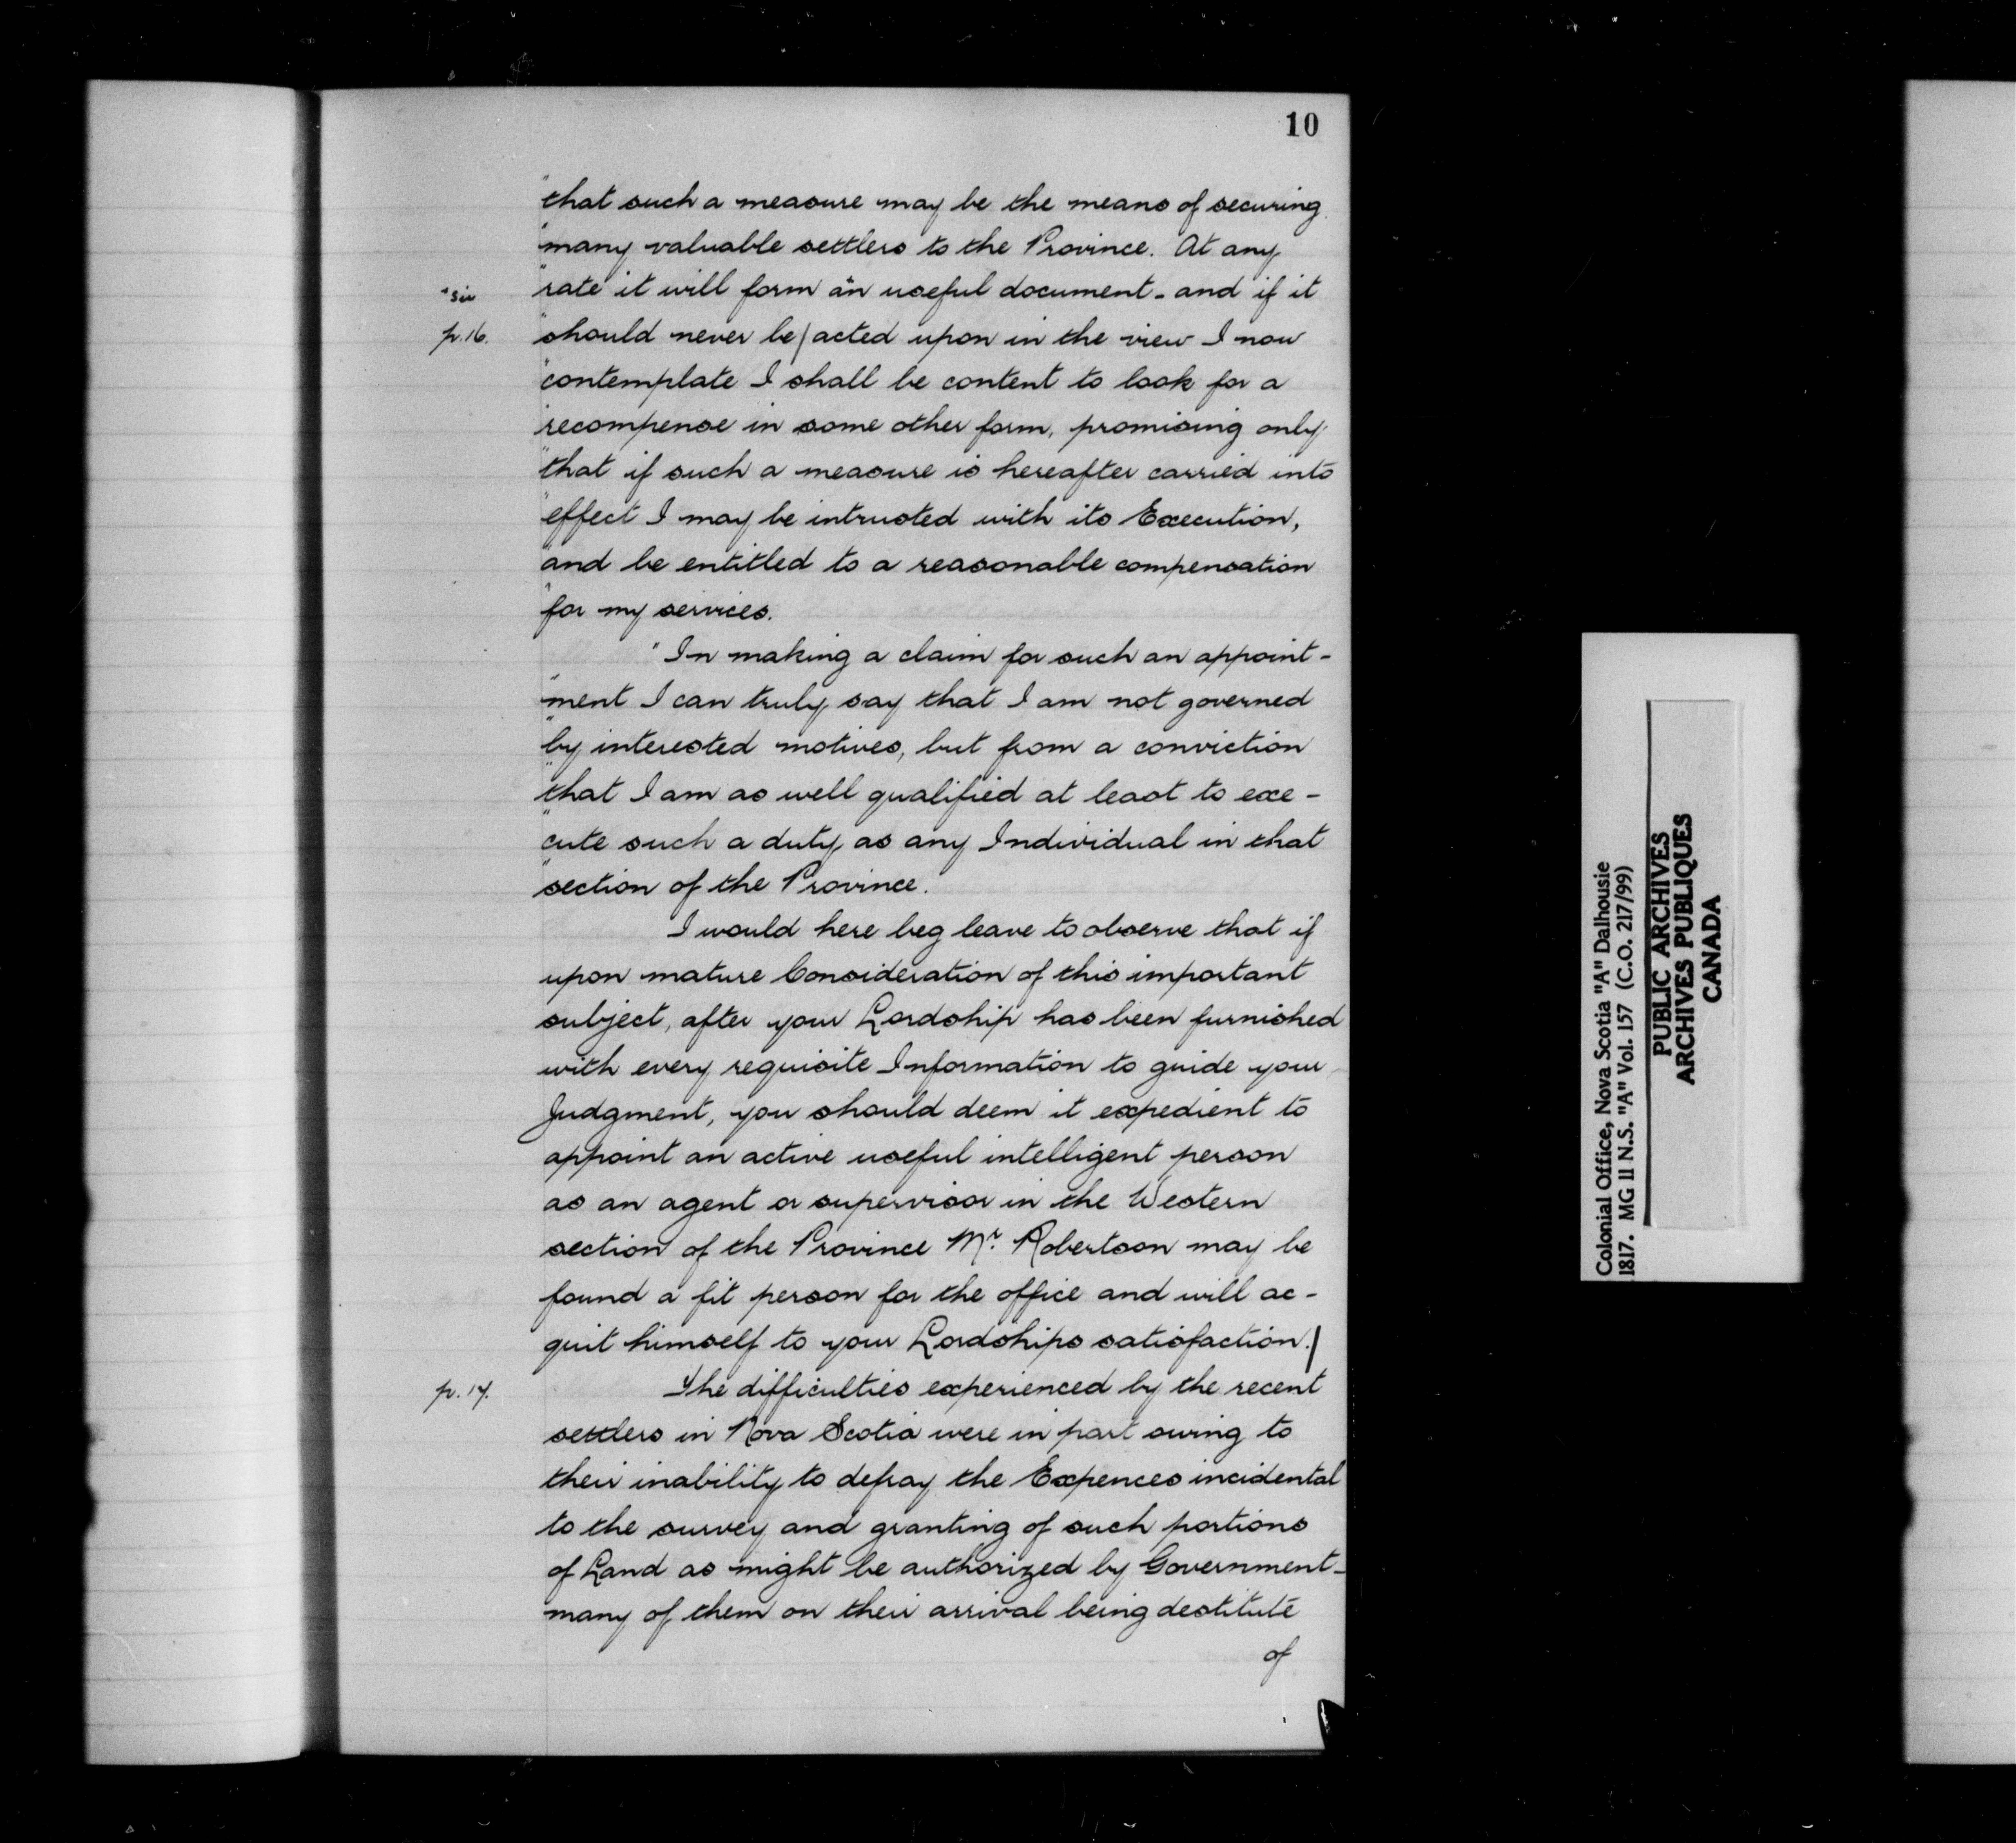 10
"that such a measure may be the means of securing
"many valuable settlers to the Province. At any
"rate it will form *an useful document - and if it
*sic
"should never be/acted upon in the view I now
p. 16.
"contemplate I shall be content to look for a
"recompense in some other form, promising only
"that if such a measure is hereafter carried into
"effect I may be intrusted with its Execution,
"and be entitled to a reasonable compensation
"for my services.
"In making a claim for such an appoint-
"ment I can truly say that I am not governed
"by interested motives, but from a conviction
"that I am as well qualified at least to exe-
"cute such a duty as any Individual in that
"section of the Province.
I would here beg leave to observe that if
upon mature Consideration of this important
subject, after your Lordship has been furnished
with every requisite Information to guide your
Judgment, you should deem it expedient to
appoint an active useful intelligent person
as an agent or supervisor in the Western
section of the Province Mr. Robertson may be
found a fit person for the office and will ac-
quit himself to your Lordships satisfaction./
p. 17.
The difficulties experienced by the recent
settlers in Nova Scotia were in part owing to
their inability to defray the Expences incidental
to the survey and granting of such portions
of Land as might be authorized by Government -
many of them on their arrival being destitute
of
Colonial Office, Nova Scotia "A" Dalhousie
1817. MG 11 N.S. "A" Vol. 157 (C.O. 217/99)
PUBLIC ARCHIVES
ARCHIVES PUBLIQUES
CANADA